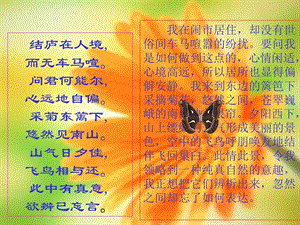 结庐在人境，
而无车马喧。
问君何能尔，
心远地自偏。
采菊东篱下，
悠然见南山。
山气日夕佳，
飞鸟相与还。
此中有真意，
欲辨已忘言。
我在闹市居住，却没有世
俗间车马喧嚣的纷扰。要问我
是如何做到这点的，心情闲适，
心境高远，所以居所也显得偏
僻安静。来到东边的篱笆下
采摘菊花，忽然之间，苍翠巍
峨的南山 眼 。夕阳西下，
山上缭 形成美丽的景
色，空中的飞鸟呼朋唤友地结
伴飞回巢 。此情此景，令我
领略到一种纯真自然的意趣，
我正想把它们辨析出来，忽然
之间却忘了如何表达。